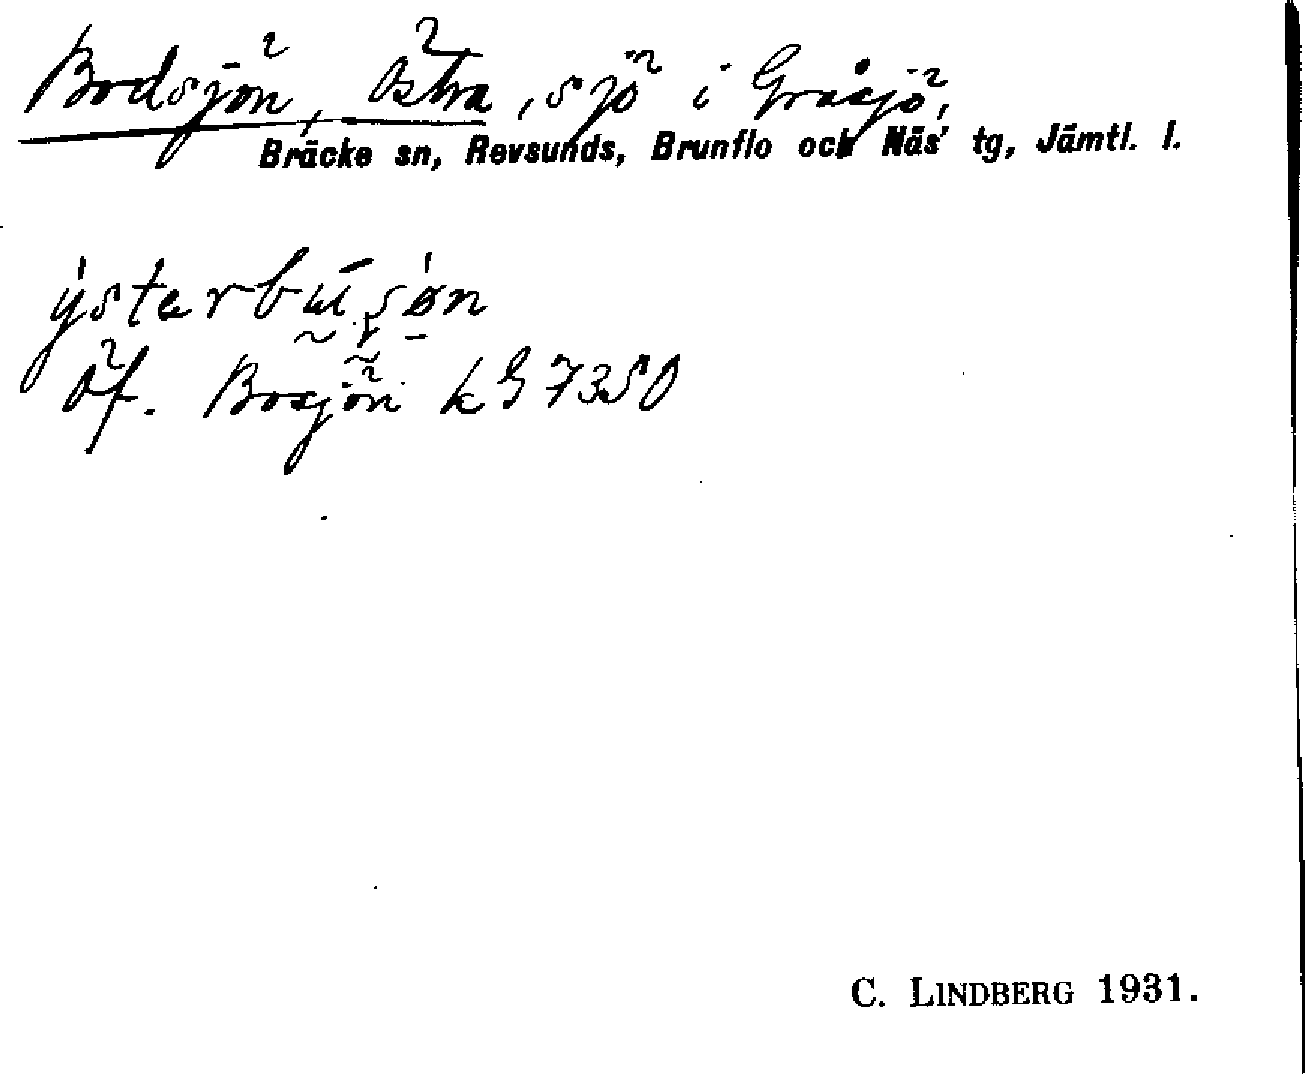 Bodsjön, Östra, sjö i Gråsjö,
Bräcke sn, Revsunds, Brunflo och Näs' tg, Jämtl. l.
Öf. Bosjön kG 7350
C. LINDBERG 1931.